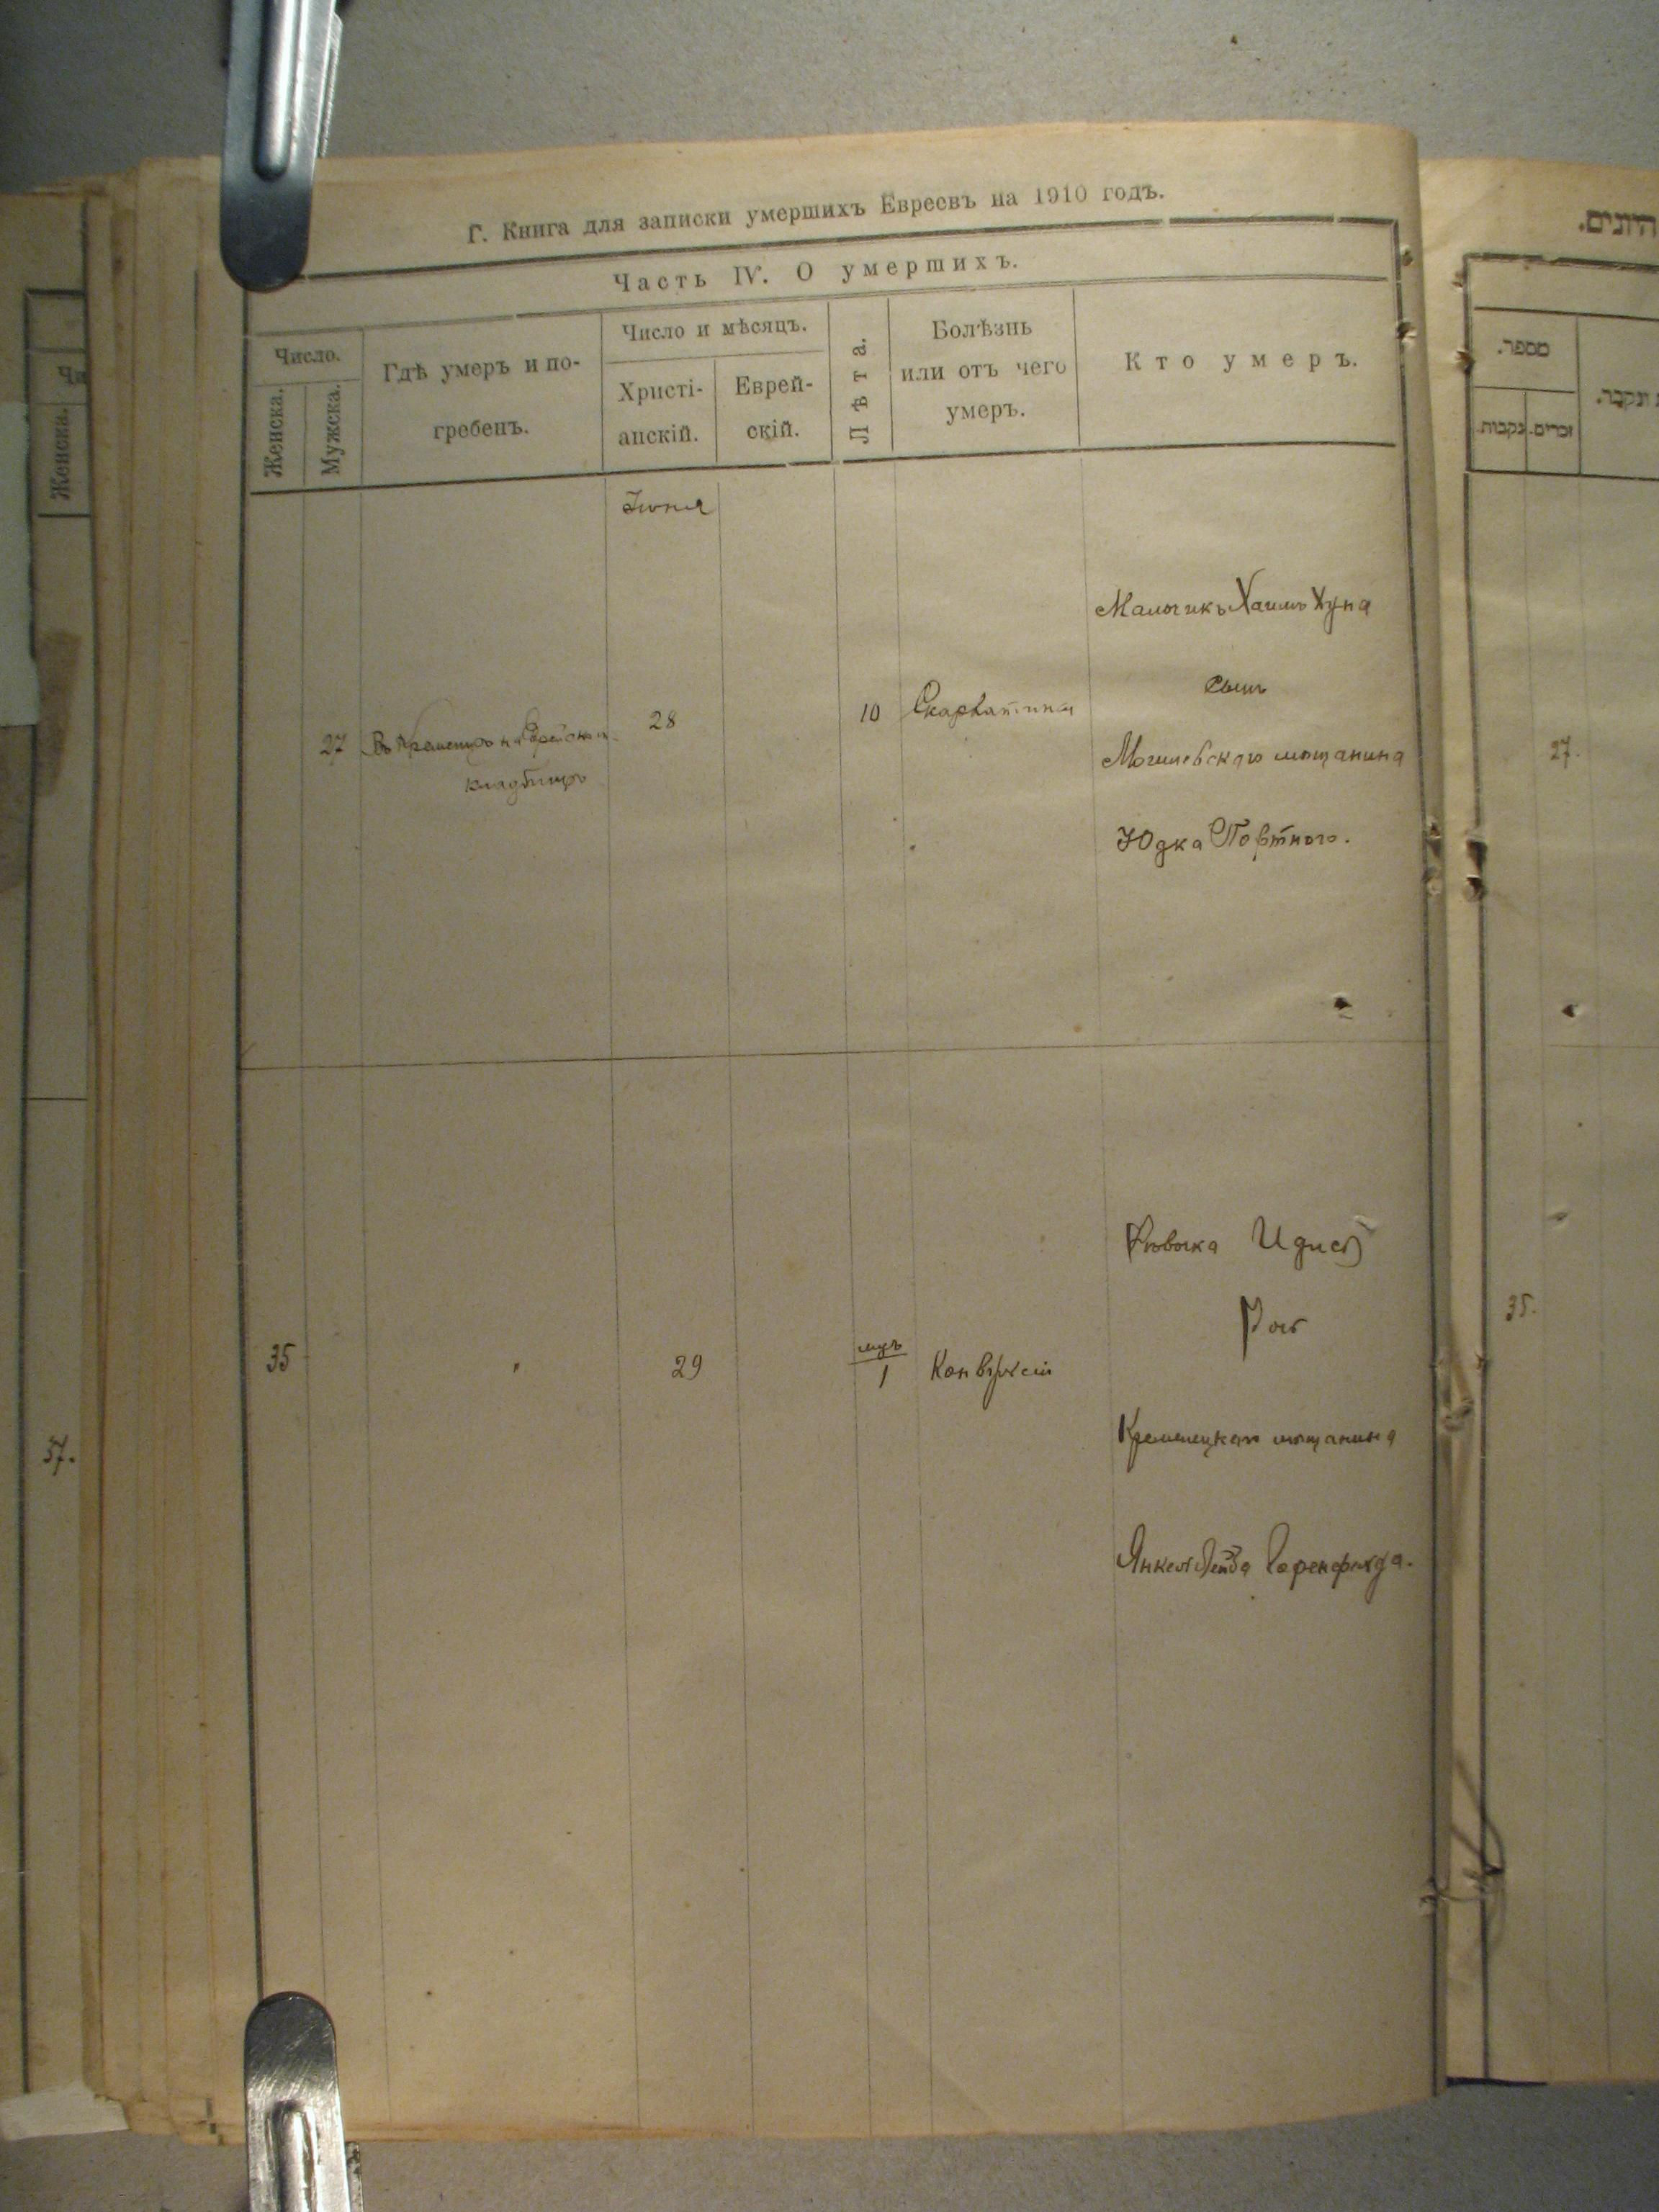 Г. Книга для записки умершихъ Евреевъ на 1910 годъ.
Часть IV. О умершихъ.
Число.
Женска.
Мужска.
Гдѣ умеръ и по-
гребенъ.
Число и мѣсяцъ.
Христі-
анскій.
Еврей-
скій.
Лѣта.
Болѣзнь
или отъ чего
умеръ.
Кто умеръ.
Іюня
Мальчикъ Хаимъ Хуна
сынъ
27
Въ Кременцѣ на Еврейском
кладбищѣ
28
10
Скарлатина
Могилевскаго мѣщанина
Юдка Портного.
Дѣвочка Идись
Дочь
35
29
мцъ
1
Конвульсіи
Кременецкаго мѣщанина
Янкеля Лейба
Женска.
37.
מספר.
זכרים.
נקבות.
27.
35.